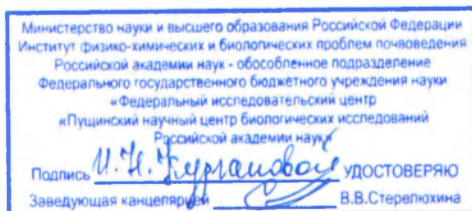 Министерство науки и высшего образования Российской Федерации
Институт физико-химических и биологических проблем почвоведения
Российской академии наук - обособленное подразделение
Федерального государственного бюджетного учреждения науки
«Федеральный исследовательский центр
«Пущинский научный центр биологических исследований
Российской академии наук»
Подпись И.Н.Кургановой УДОСТОВЕРЯЮ
Заведующая канцелярией В.В.Стерелюхина